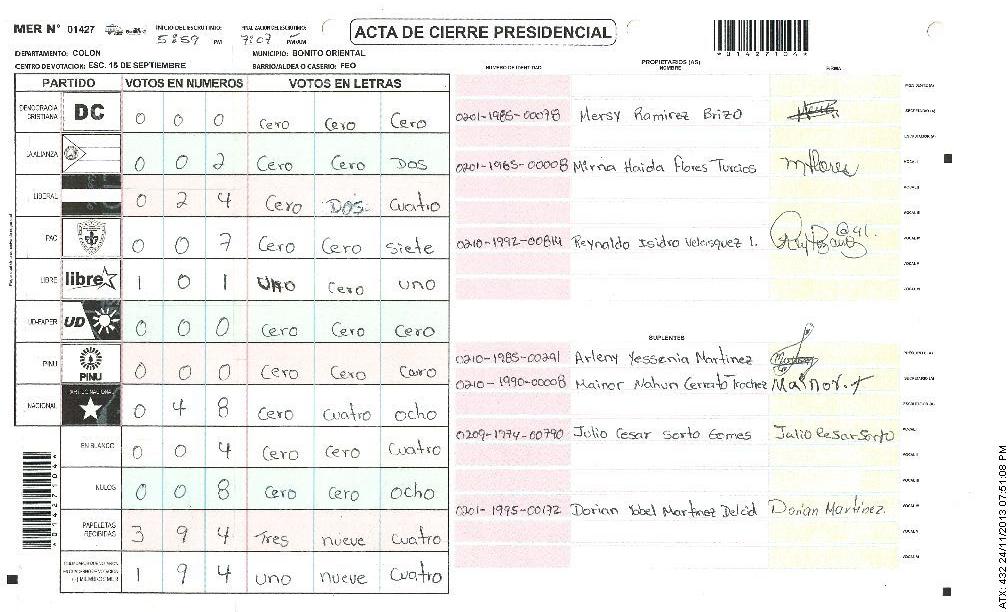 MER Nº 01427
INICIO DEL ESCRUTINIO: 5:59 PM
FINALIZACION DEL ESCRUTINIO: 7:07 PM/AM
ACTA DE CIERRE PRESIDENCIAL
*01427104*
DEPARTAMENTO: COLON
MUNICIPIO: BONITO ORIENTAL
CENTRO DE VOTACION: ESC. 15 DE SEPTIEMBRE
BARRIO/ALDEA O CASERIO: FEO
PARTIDO VOTOS EN NUMEROS VOTOS EN LETRAS
DEMOCRACIA CRISTIANA DC 0 0 0 Cero Cero Cero
LA ALIANZA 0 0 2 Cero Cero Dos
LIBERAL 0 2 4 Cero DOS Cuatro
PAC 0 0 7 Cero Cero Siete
LIBRE libre 1 0 1 UNO Cero uno
UD-FAPER UD 0 0 0 Cero Cero Cero
PINU PINU 0 0 0 Cero Cero Cero
NACIONAL PARTIDO NACIONAL 0 4 8 Cero Cuatro ocho
EN BLANCO 0 0 4 Cero Cero Cuatro
NULOS 0 0 8 Cero Cero ocho
PAPELETAS RECIBIDAS 3 9 4 Tres nueve Cuatro
1 9 4 uno nueve Cuatro
*01427104*
NUMERO DE IDENTIDAD PROPIETARIOS (AS) NOMBRE FIRMA
0201-1985-00078 Mersy Ramirez Brizo
0201-1985-00008 Mirna Haida Flores Turcios mflores
0210-1992-00814 Reynaldo Isidro Velasquez l.
SUPLENTES
0210-1985-00291 Arleny Yessenia Martinez
0210-1990-00008 Mainor Nahun Cerrato Trochez Mainor.t
0209-1974-00790 Julio Cesar Sorto Gomes Julio Cesar Sorto
0201-1995-00172 Dorian Yobel Martinez Delcid Dorian Martinez.
ATX: 432 24/11/2013 07:51:08 PM